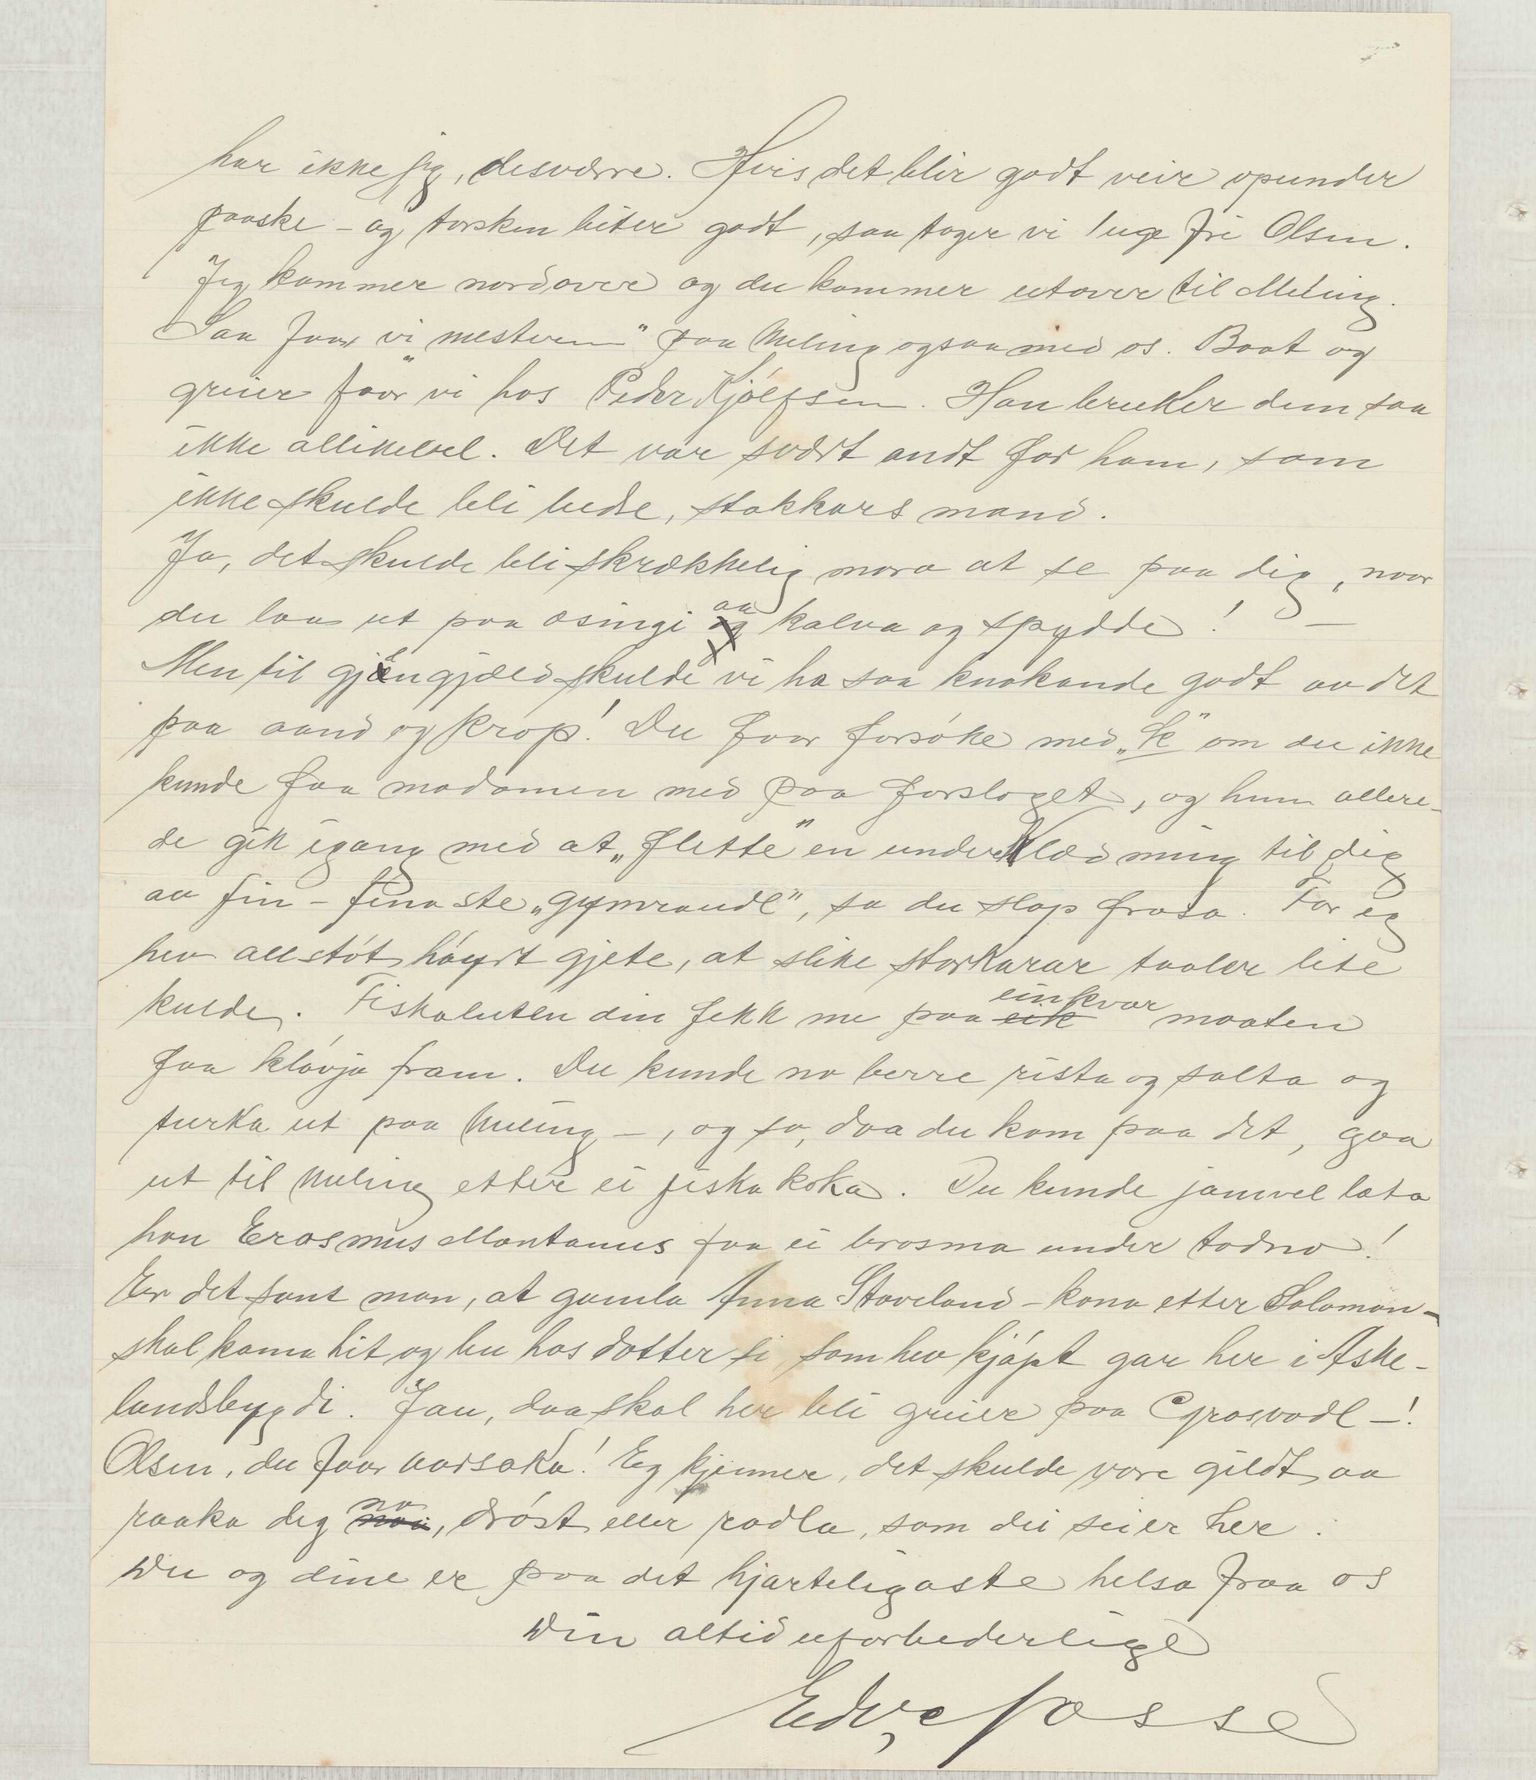 har ikke jeg, desværre. Hvis det blir godt veir opunder
paaske – og torsken biter godt, saa tager vi 1 uge fri Olsen.
Jeg kommer nordover og du kommer utover til Meling.
Saa faar vi „mesteren" paa Meling ogsaa med os. Baat og
greier faar vi hos Peder Kjólfsen. Han bruker dem saa
ikke allikevel. Det var svært ondt for ham, som
ikke skulde bli bedre, stakkars mand.
Ja, det skulde bli skrækkelig mora at se paa dig, naar
du laa ut paa osingi aa kalva og spydde! –
Men til gjengjæld skulde vi ha saa knakande godt av det
paa aand og krop! Du faar forsøke med „K" om du ikke
kunde faa madamen med paa forslaget, og hun allere-
de gik igang med at „flette" en underklædning til dig
av fin-finaste „gymraudl", so du slap frosa. For eg
hev allstöt höyrt gjete, at slike storkarar taaler lite
kulde. Fiskaluten din fekk me paa einkvar maaten
faa klövja fram. Du kunde no berre rista og salta og
turka ut paa Meling –, og so, daa du kom paa det, gaa
ut til Meling etter ei fiskakoka. Du kunde jamvel lata
han Erasmus Montanus faa ei brosma under tadno!
Er det sant mon, at gamla Anna Staveland – kona etter Salomon –
skal koma hit og bu hos dotter si som hev kjöpt gar her i Aske-
landsbygdi. Jau, daa skal her bli greier paa Grosvadl –!
Olsen, du faar aarsaka! Eg kjenner, det skulde vore gildt aa
raaka deg no, dröst eller radla, som dei seier her.
Du og dine er paa det hjarteligaste helsa fraa os
Din altid uforbederlige
Edv. Fosse